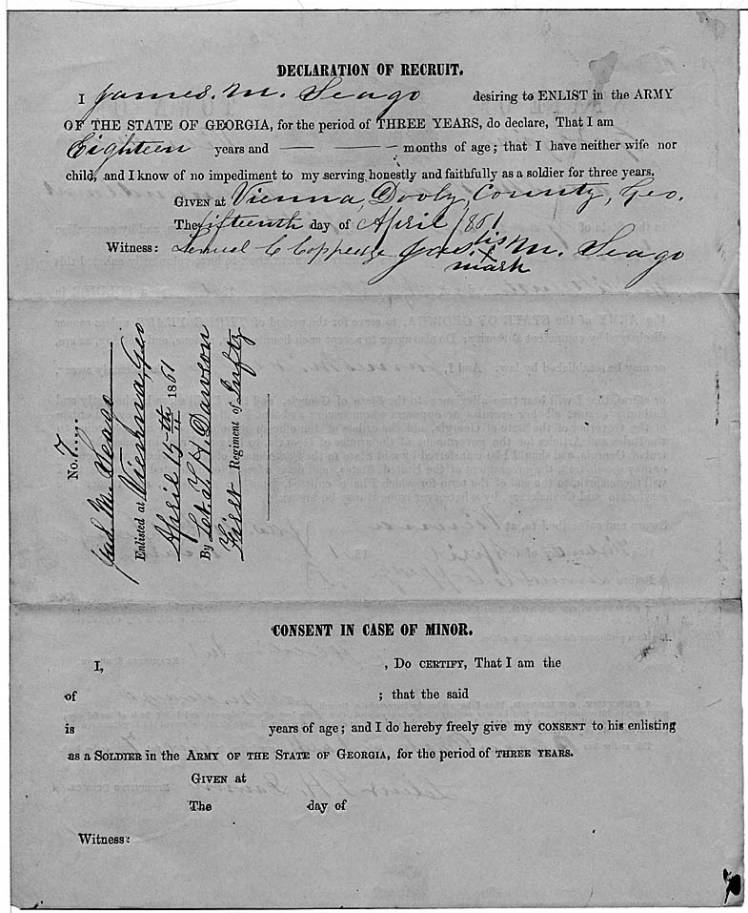 DECLARATION OF RECRUIT.
I James. M. Seago desiring to ENLIST in the ARMY
OF THE STATE OF GEORGIA, for the period of THREE YEARS, do declare, That I am
Eighteen years and — — months of age; that I have neither wife nor
child, and I know of no impediment to my serving honestly and faithfully as a soldier for three years.
GIVEN at Vienna, Dooly, County, Geo.
The fifteenth day of April 1861
Witness: Lemuel C Coppedge Jas. his M. Seago
X
mark
No. 7
Jas M. Seago
Enlisted at Vienna, Geo
April 15th 1861
By Lt. Dawson
First Regiment of Infty
CONSENT IN CASE OF MINOR.
I, , Do CERTIFY, That I am the
of ; that the said
is years of age; and I do hereby freely give my CONSENT to his enlisting
as a SOLDIER in the ARMY OF THE STATE OF GEORGIA, for the period of THREE YEARS.
GIVEN at
The day of
Witness: